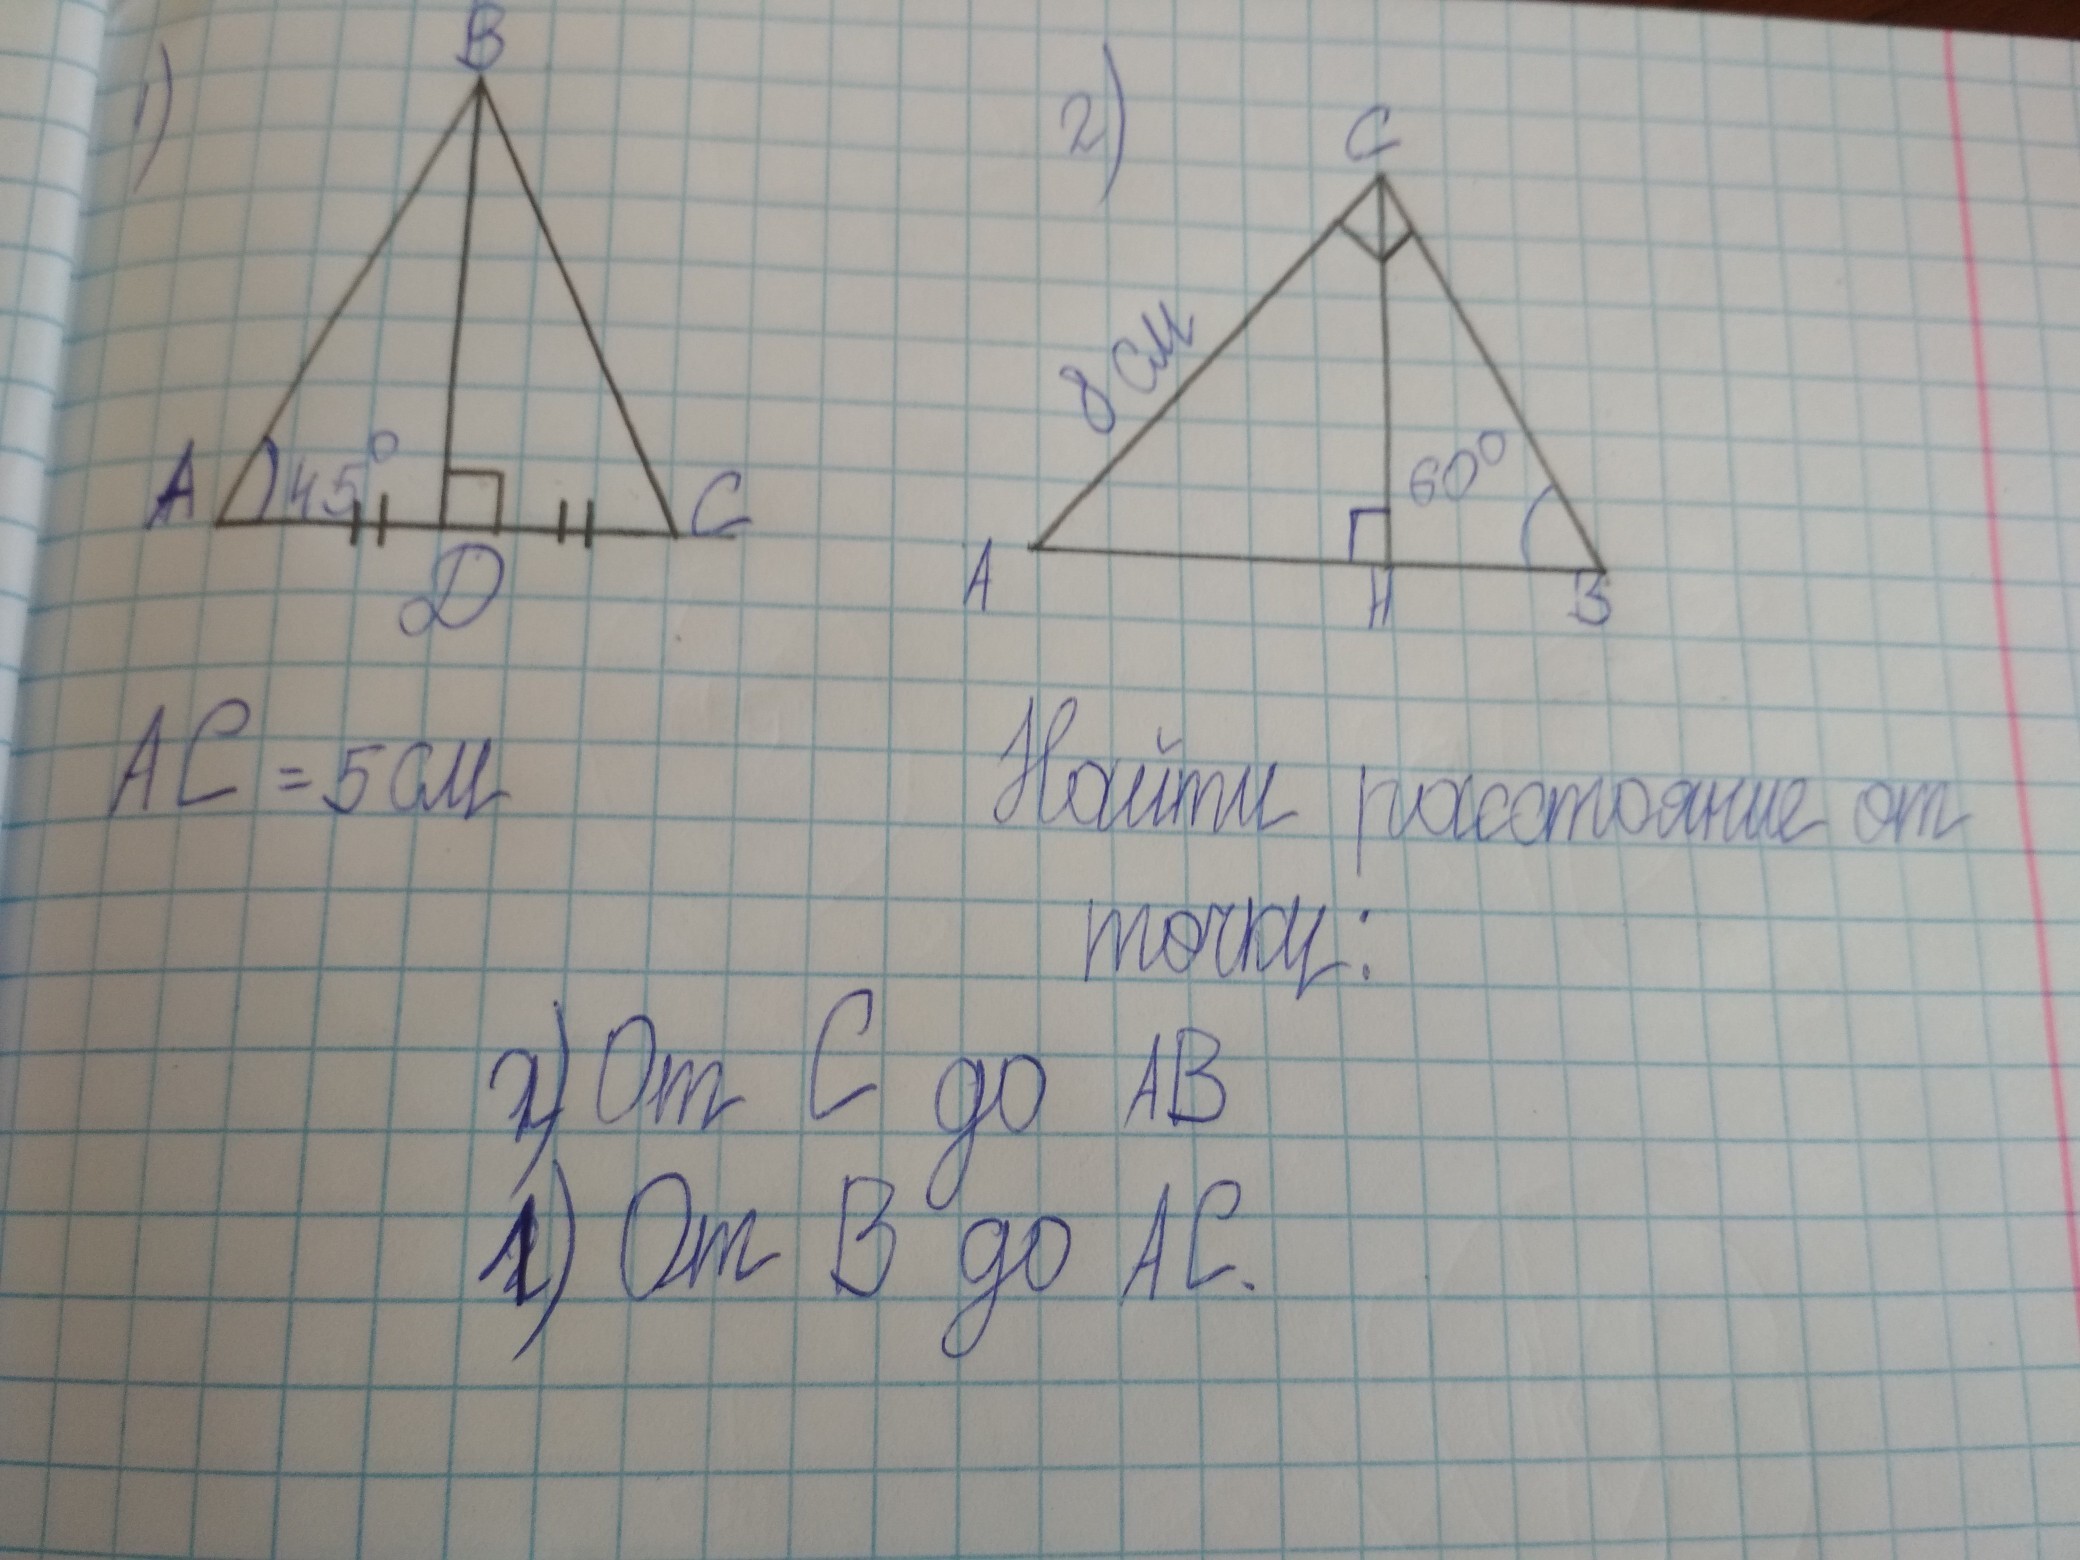 1)
B
A
45°
C
D
AC = 5 см
2)
C
8 см
60°
A
H
B
Найти расстояние от
точки:
2) От C до AB
1) От B до AC.